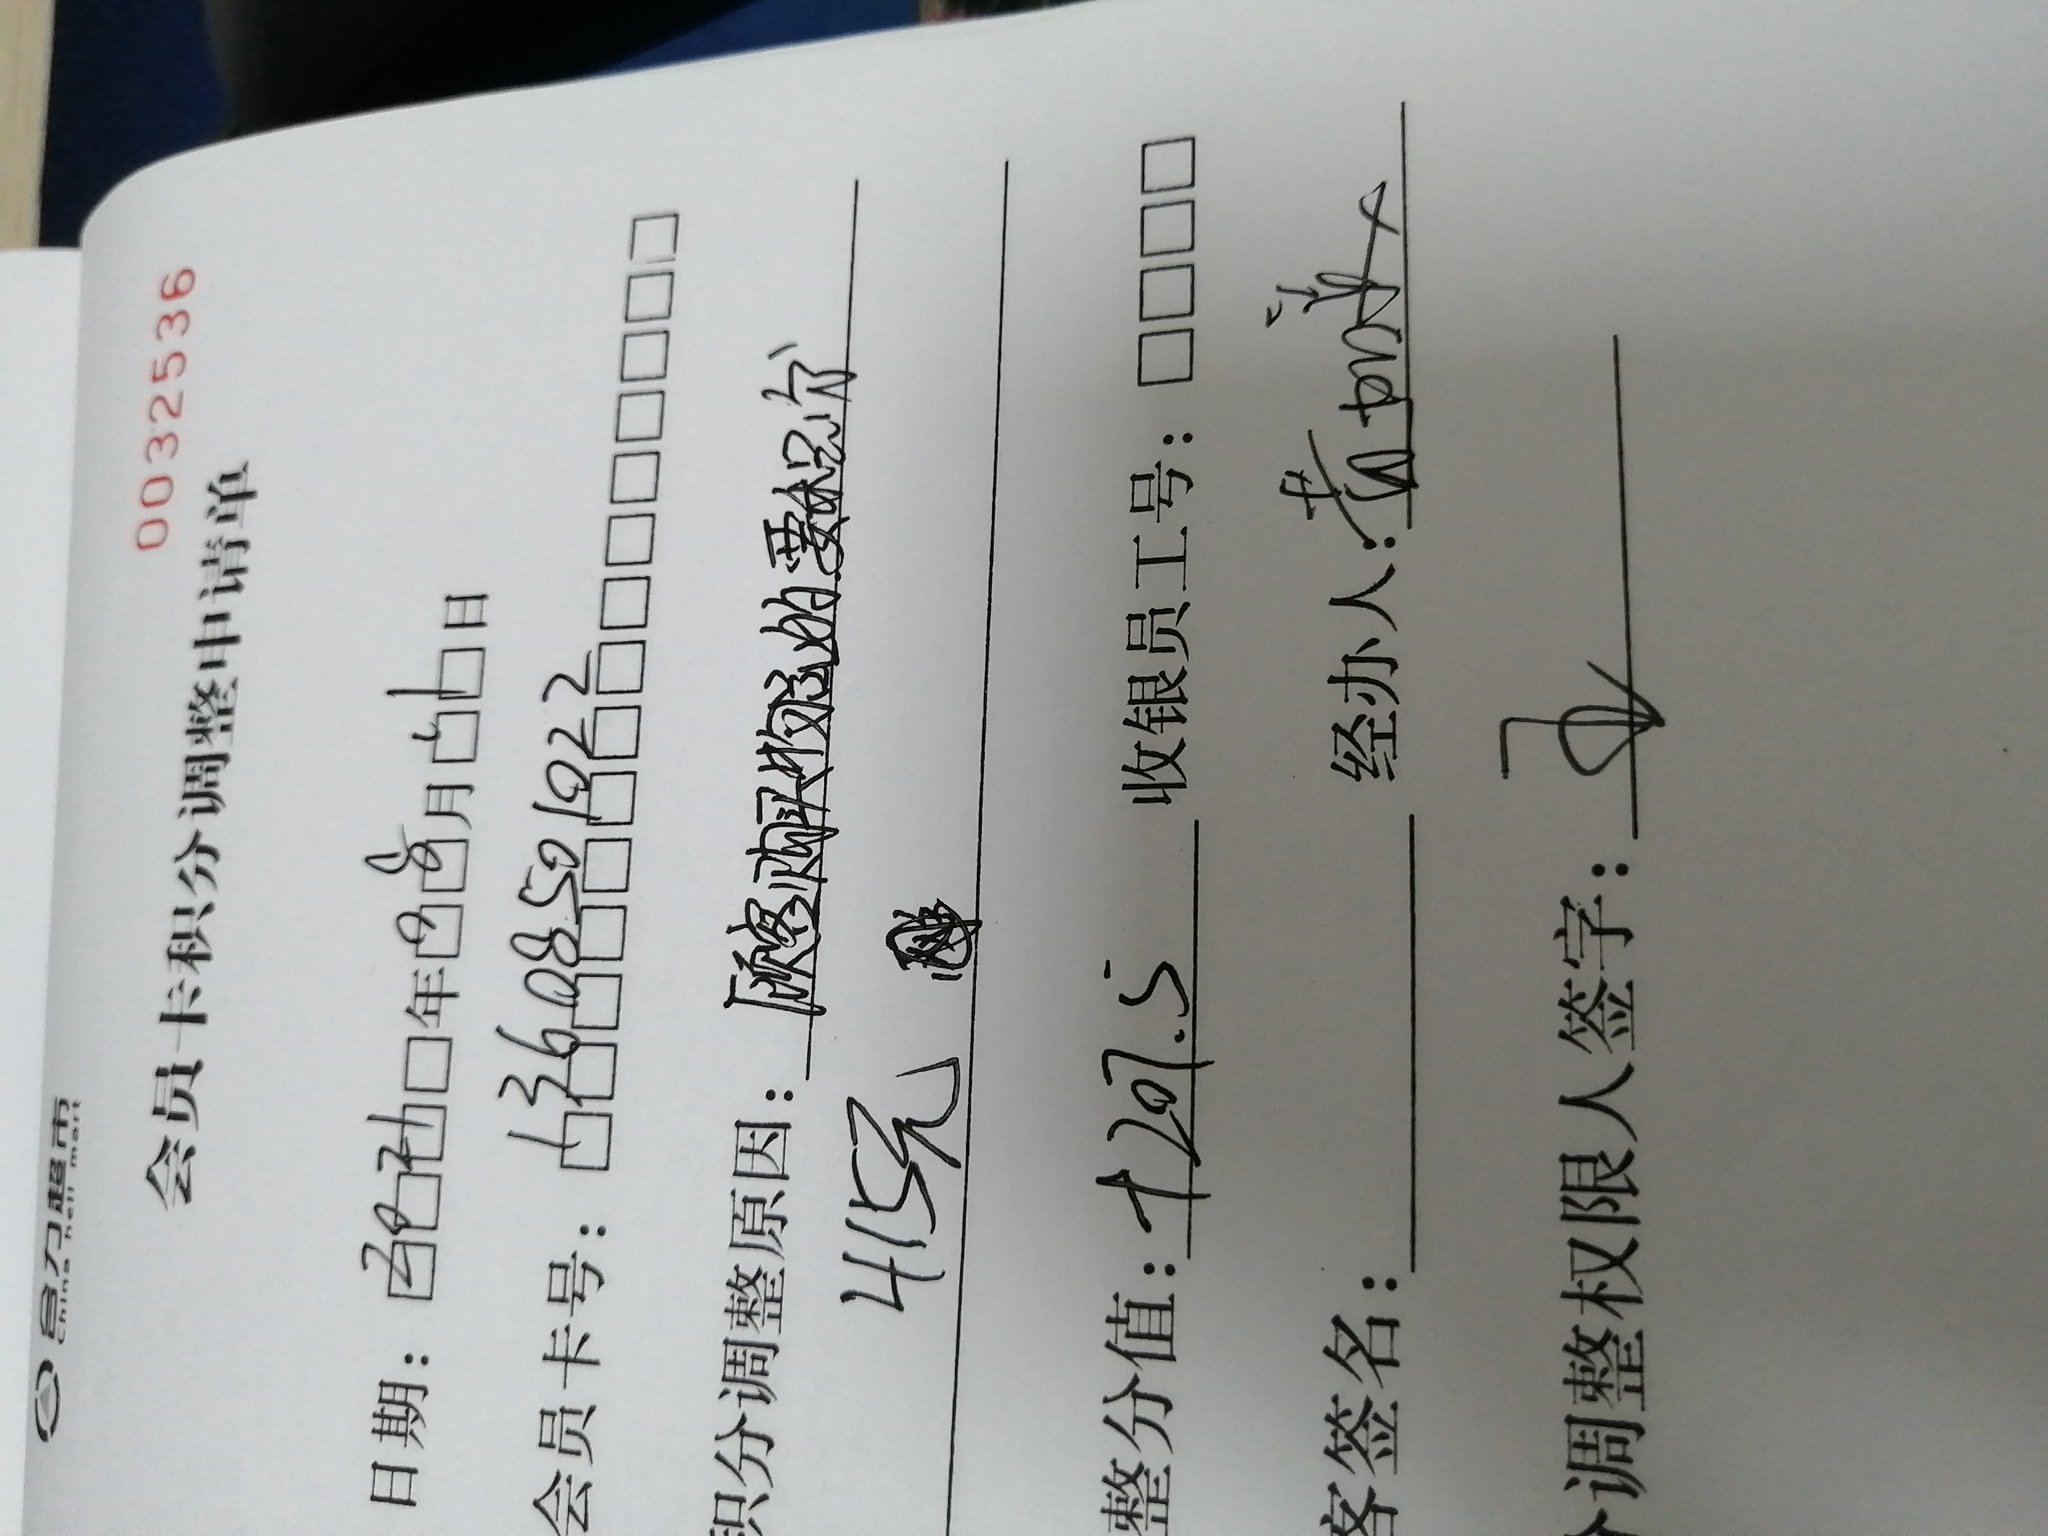 合力超市
China heli mart
0032536
会员卡积分调整申请单
日期：2021年09月11日
会员卡号：13608501922
积分调整原因：顾客购买物品时要积分
415元
整分值：+207.5 收银员工号：
客签名： 经办人：
分调整权限人签字：